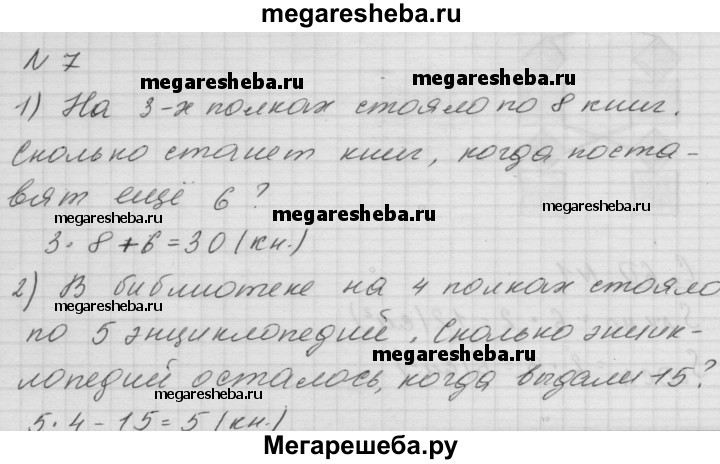 megaresheba.ru
N 7
megaresheba.ru
megaresheba.ru
1) На 3-х полках стояло по 8 книг.
Сколько станет книг, когда поста-
вят ещё 6?
megaresheba.ru
megaresheba.ru
megaresheba.ru
3·8+6=30(кн.)
2) В библиотеке на 4 полках стояло
megaresheba.ru
по 5 энциклопедий. Сколько энцик-
megaresheba.ru
лопедий осталось, когда выдали 15?
megaresheba.ru
megaresheba.ru
5·4-15=5(кн.)
Мегарешеба.ру